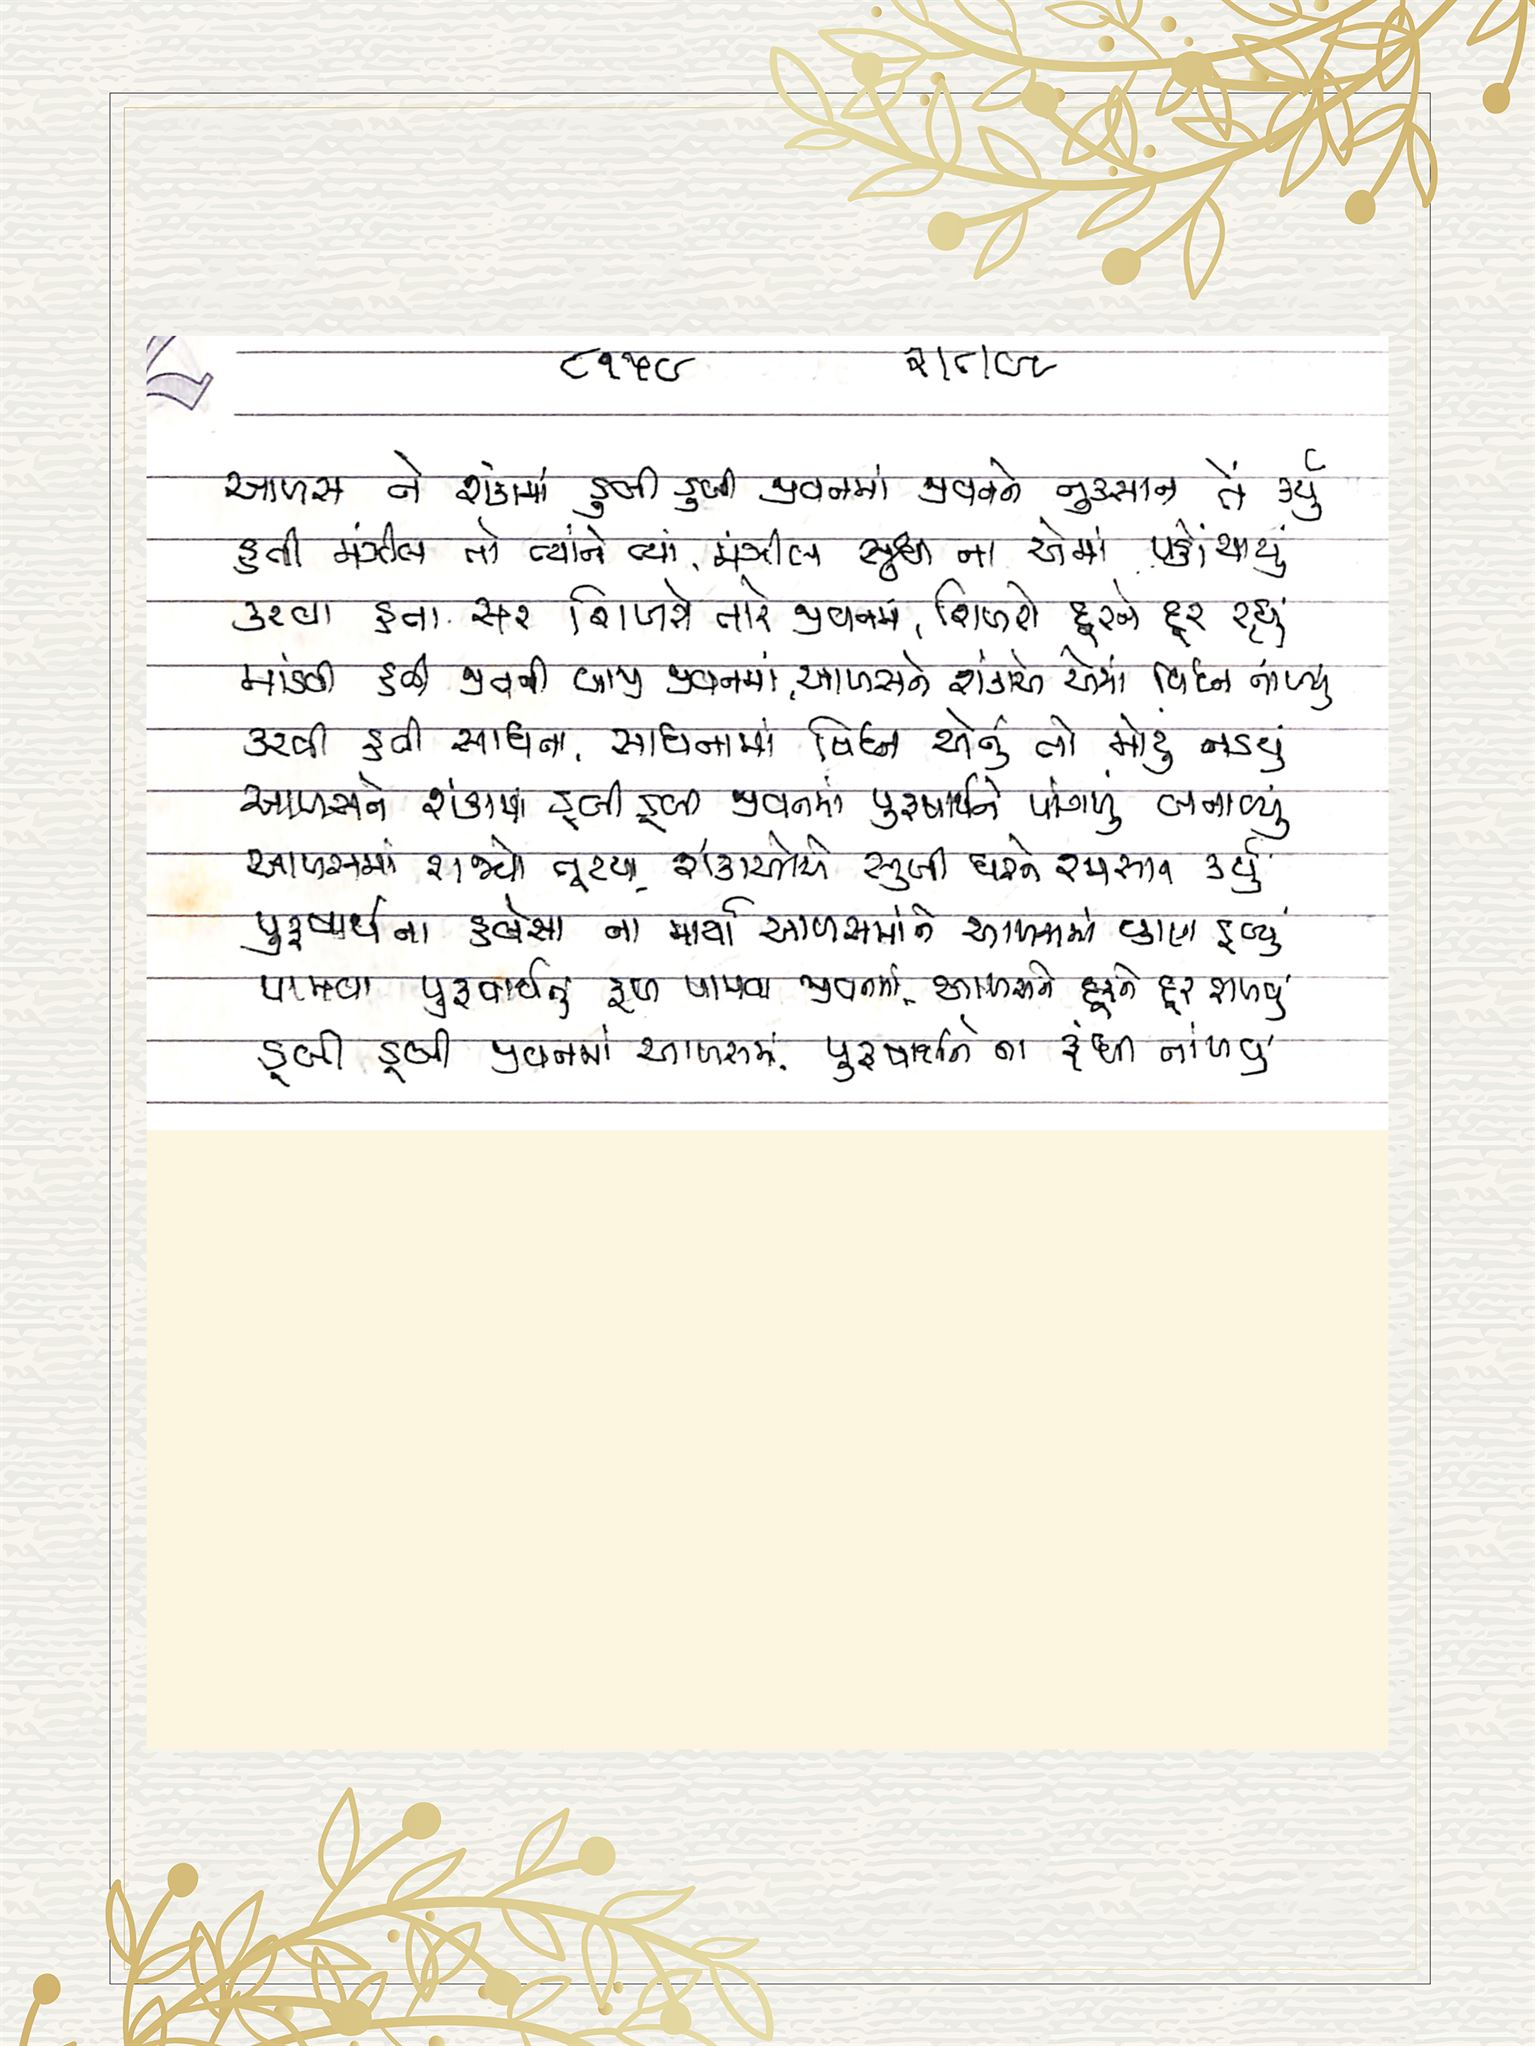 ૮૧૫૮ ૨/૮/૯૯
આળસ ને શંકામાં ડુબી ડુબી જીવનમાં જીવનને નુકસાન તેં કર્યું
હતી મંઝીલ તો ત્યાંને ત્યાં, મંઝીલ સુધી ના એમાં પહોંચાયું
કરવા હતા સર શિખરો તારે જીવનમાં, શિખરો દૂરને દૂર રહ્યું
માંડવી હતી જીવનની બાજી જીવનમાં, આળસને શંકાએ એમાં વિઘ્ન નાંખ્યું
કરવી હતી સાધના, સાધનામાં વિઘ્ન એનું તો મોટું નડયું
આળસને શંકામાં ડૂબી ડૂબી જીવનમાં પુરૂષાર્થને પાંગળું બનાવ્યું
આળસમાં રાચ્યો શંકાઓએ સુખી ઘરને કર્યું
પુરૂષાર્થના ના માર્યા આળસમાંને આળસમાં
પામવા પુરૂષાર્થનું ફળ પામવા જીવનમાં, આળસને દૂરને દૂર રાખવું
ડૂબી ડૂબી જીવનમાં આળસમાં, પુરૂષાર્થને ના રૂંધી નાંખવું